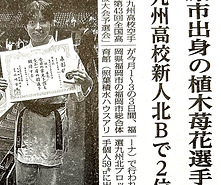 原市出身の植木苺花選手
九州高校新人北Bで2位
九州高校空手
第43回全国高
大会予選会」
が今月1〜3の3日間、福
岡県福岡市の福岡市総合体
育館（照葉積水ハウスアリ
ーナ）で行われ
選九州北ブロッ
手個人59㌔に出